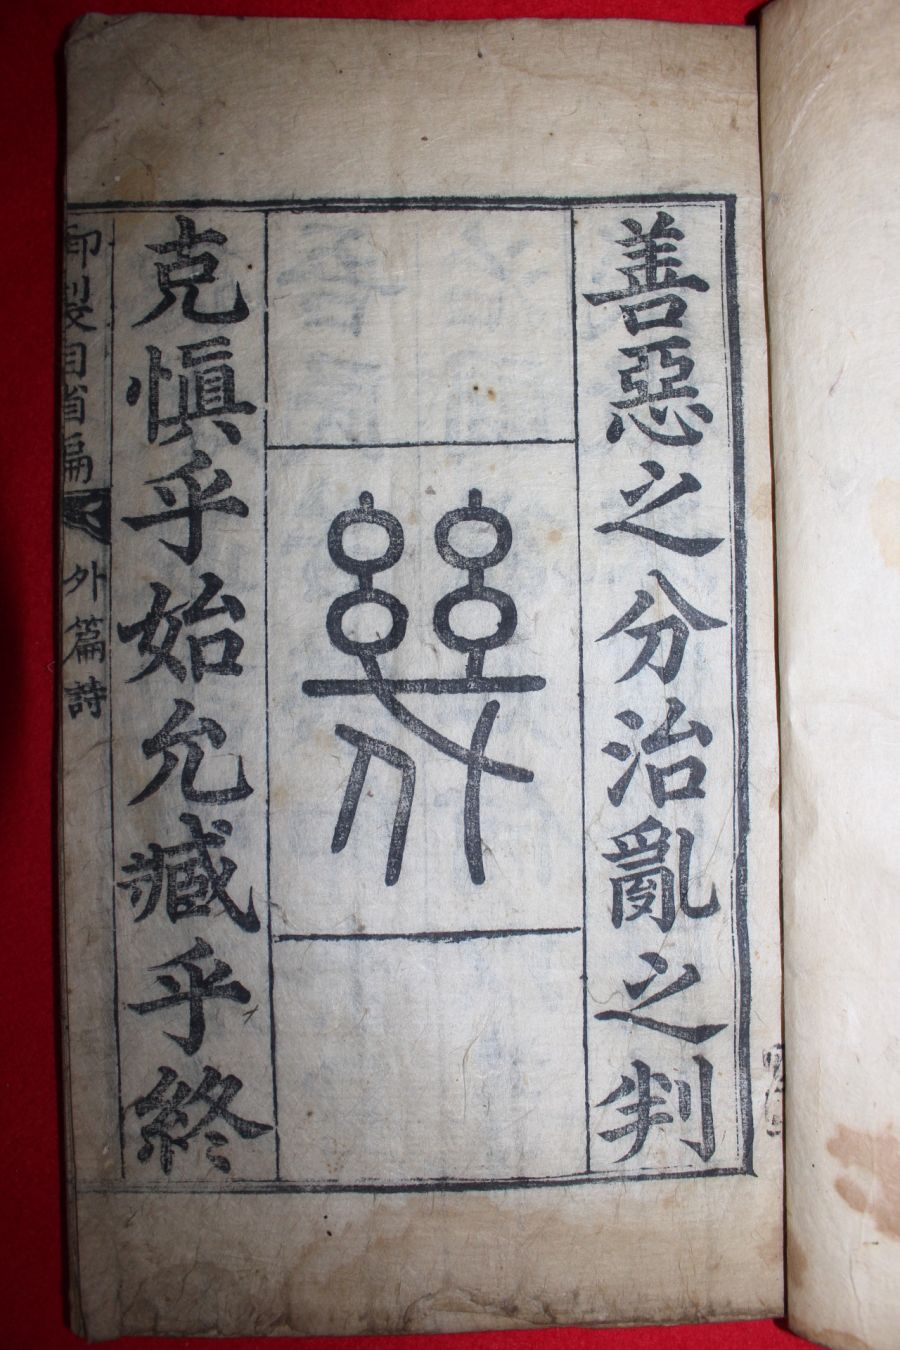 善惡之分治亂之判
幾
克愼乎始允臧乎終
御製自省編 外篇 詩